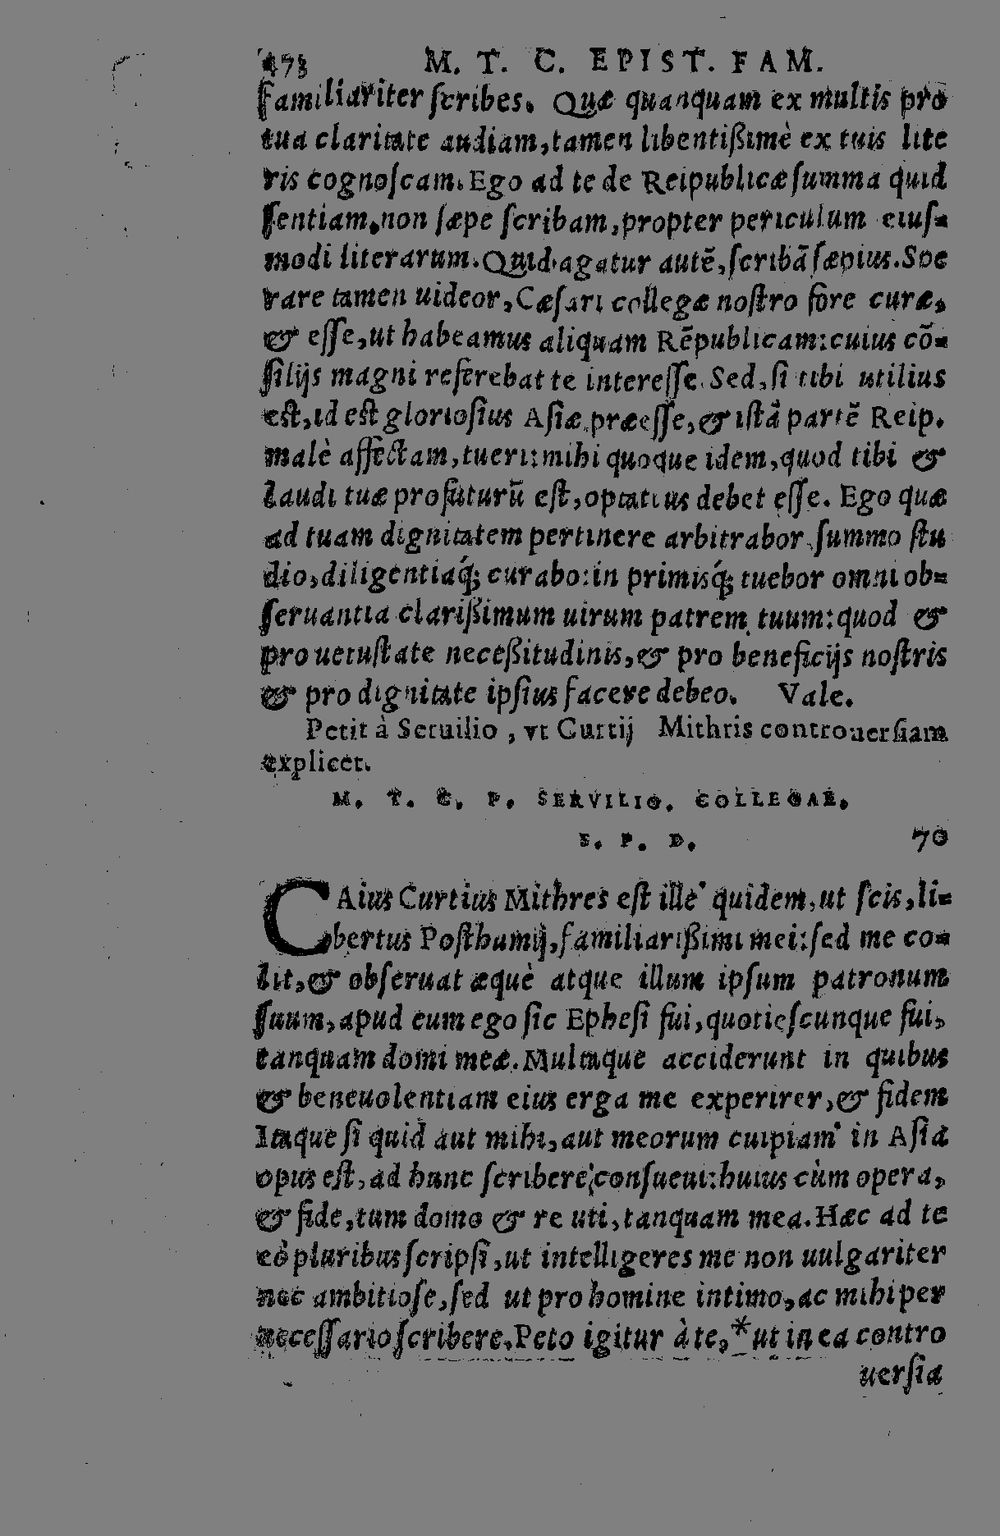 473 M. T. C. EPIST. FAM.
familiariter ſcribes. Quæ quanquam ex multis pro
tua claritate audiam, tamen libentißimè ex tuis lite
ris cognoſcam. Ego ad te de Reipublicæ ſumma quid
ſentiam, non ſæpe ſcribam, propter periculum eiuſ-
modi literarum. Quid agatur autẽ, ſcribã ſæpius. Spe
rare tamen uideor, Cæſari collegæ noſtro fore curæ,
& eſſe, ut habeamus aliquam Rẽpublicam: cuius cõ-
ſilijs magni referebat te intereſſe. Sed, ſi tibi utilius
eſt, id eſt glorioſius Aſiæ præeſſe, & iſtã partẽ Reip.
malè affectam, tueri: mihi quoque idem, quod tibi &
laudi tuæ profuturũ eſt, optatius debet eſſe. Ego quæ
ad tuam dignitatem pertinere arbitrabor, ſummo ſtu
dio, diligentiaq́; curabo: in primisq́; tuebor omni ob-
ſeruantia clarißimum uirum patrem tuum: quod &
pro uetuſtate neceßitudinis, & pro beneficijs noſtris
& pro dignitate ipſius facere debeo. Vale.
Petit à Seruilio, vt Curtij Mithris controuerſiam
explicet.
M. T. C. P. SERVILIO. COLLEGAE.
S. P. D. 70
CAius Curtius Mithres eſt ille quidem, ut ſcis, li-
bertus Poſthumij, familiarißimi mei: ſed me co-
lit, & obſeruat æquè atque illum ipſum patronum
ſuum, apud eum ego ſic Epheſi fui, quotieſcunque fui,
tanquam domi meæ. Multaque acciderunt in quibus
& beneuolentiam eius erga me experirer, & fidem
Itaque ſi quid aut mihi, aut meorum cuipiam in Aſia
opus eſt, ad hunc ſcribere conſueui: huius cùm opera,
& fide, tum domo & re uti, tanquam mea. Hæc ad te
eò pluribus ſcripſi, ut intelligeres me non uulgariter
nec ambitioſe, ſed ut pro homine intimo, ac mihi per
neceſſario ſcribere. Peto igitur à te, * ut in ea contro
uerſia